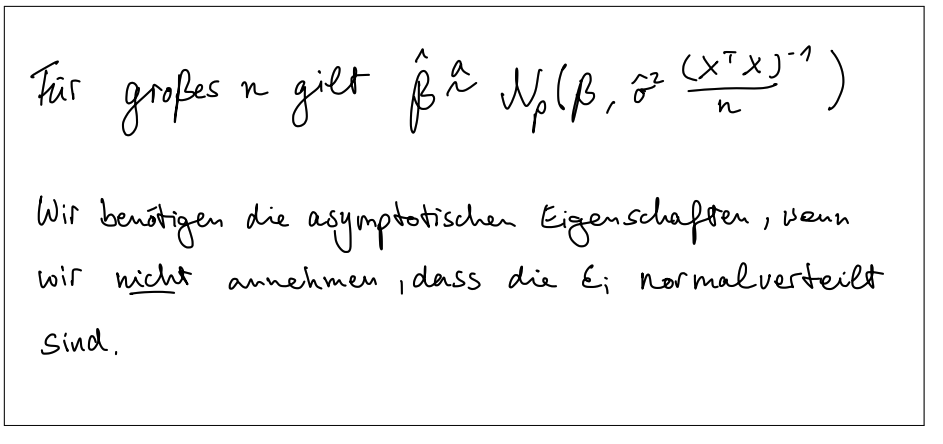 Für großes n gilt β̂ ᵃ~ 𝒩ₚ(β, σ̂² (XᵀX)⁻¹/n)
Wir benötigen die asymptotischen Eigenschaften, wenn
wir nicht annehmen, dass die εᵢ normalverteilt
sind.